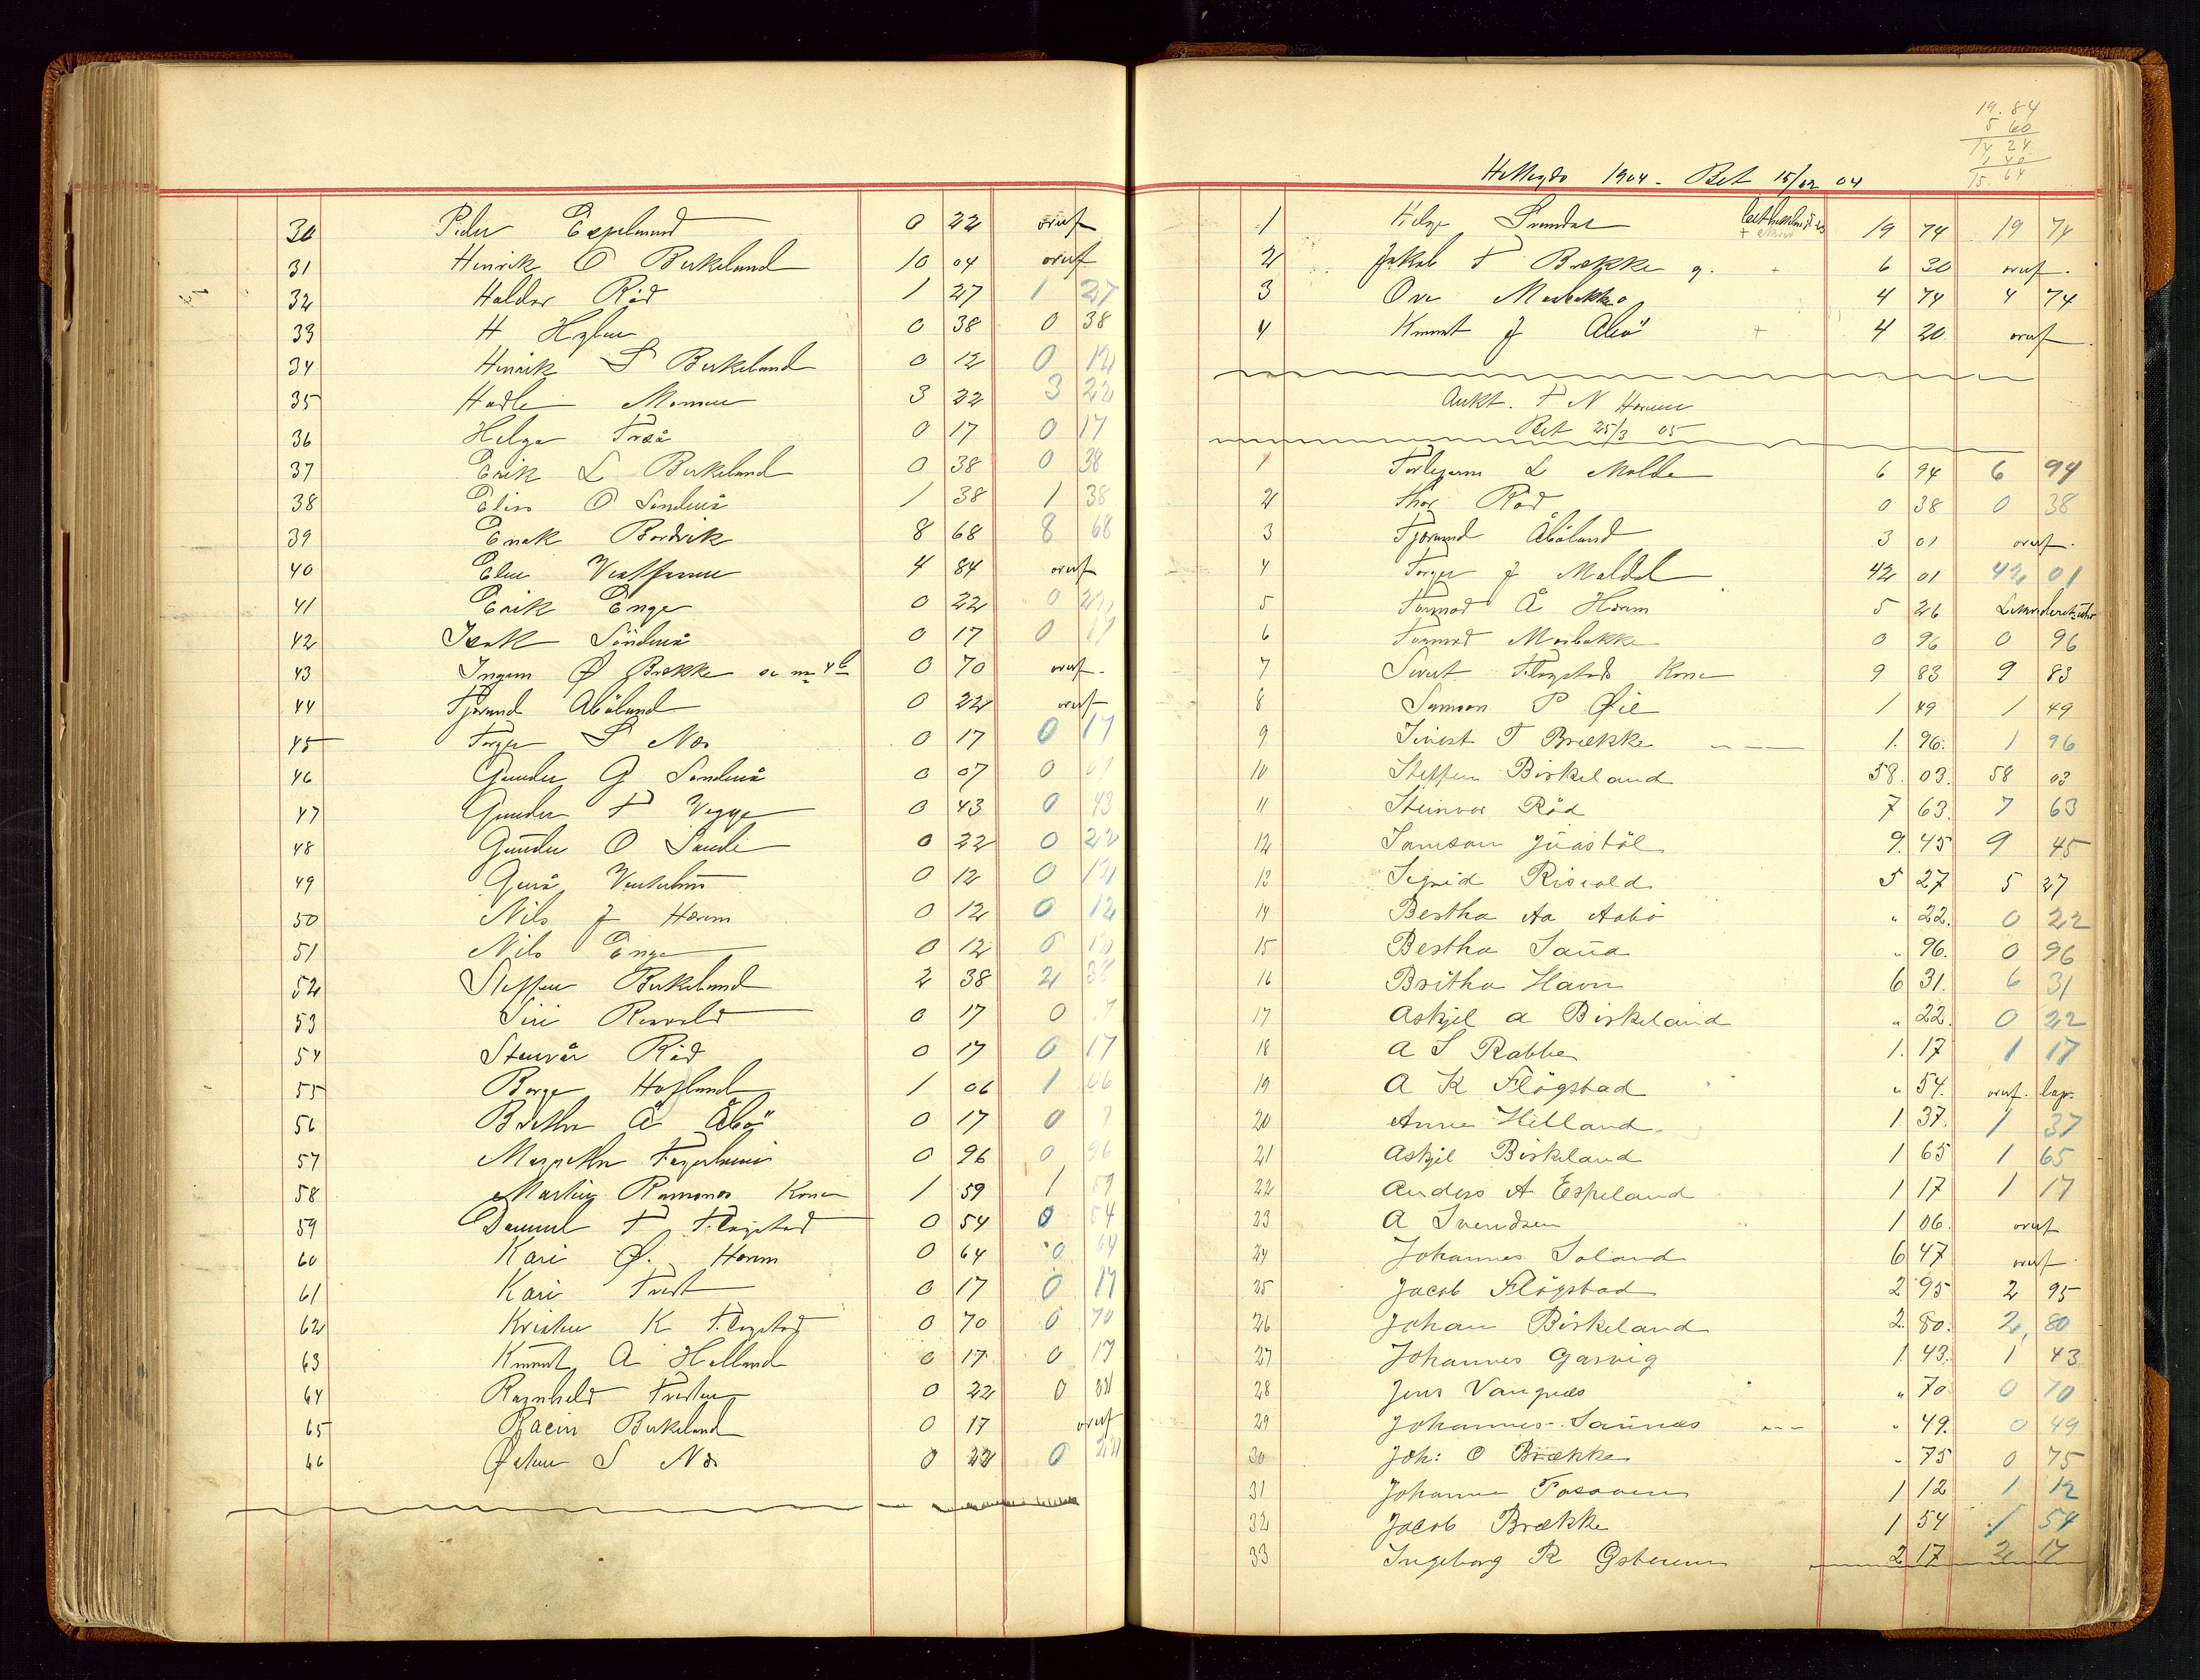 30 Peder Espelund 0 22 overf
31 Henrik O Birkeland 10 04 overf
32 Haldor Råd 1 27 1 27
33 H 0 38 0 38
34 Henrik S Birkeland 0 12 0 12
35 Hadle 3 22 3 22
36 Helga Træå 0 17 0 17
37 Erik L Birkeland 0 38 0 38
38 Elias O Sandenå 1 38 1 38
39 Enok Bordvik 8 68 8 68
40 Elen 4 84 overf
41 Erik Enge 0 22 0 22
42 Isak Söndenå 0 17 0 17
43 Ingem Ø Brække 0 70 overf.
44 Tjerand Åböland 0 22 overf
45 Torger S Næs 0 17 0 17
46 Gunder G Sandenå 0 07 0 07
47 Gunder T Vegge 0 43 0 43
48 Gunder O Sande 0 22 0 22
49 Guri 0 12 0 12
50 Nils J Harem 0 12 0 12
51 Nils Enge 0 12 0 12
52 Steffen Birkeland 2 38 2 38
53 Siri Risvold 0 17 0 17
54 Stenvår Råd 0 17 0 17
55 Borge 1 06 1 06
56 Brithe Å Åbö 0 17 0 17
57 Margrethe 0 96 0 96
58 Martin Ramsnes Kone 1 59 1 59
59 Samuel T Flögstad 0 54 0 54
60 Kari Ø. Harem 0 64 0 64
61 Kari 0 17 0 17
62 Kristen K Flögstad 0 70 0 70
63 Knut A Helland 0 17 0 17
64 Ragnhild 0 22 0 22
65 Birkeland 0 17 overf
66 Østen S Næs 0 22 0 22
19.84
5 60
14 24
1 40
15.64
1904 - Bet 15/12 04
1 Helge 19 74 19 74
2 Jakob T Brække g. 6 30 overf.
3 Ove Mosbakka 4 74 4 74
4 Knut J Åbö 4 20 overf.
Aukt. T N Harem
Bet 25/3 05
1 Torbjörn L Molde 6 94 6 94
2 Thor Råd 0 38 0 38
3 Tjerand Åböland 3 01 overf.
4 Torger J Maldal 42 01 42 01
5 Tormod Å Harem 5 26
6 Tormod Mosbakke 0 96 0 96
7 Sivert Flögstads Kone 9 83 9 83
8 Samson P Øie 1 49 1 49
9 Sivert T Brække 1. 96. 1 96
10 Steffen Birkeland 58. 03. 58 03
11 Steinvor Råd 7 63. 7 63
12 Samson Juvstöl 9. 45 9 45
13 Sigrid Risvold 5 27 5 27
14 Bertha Aa Aabö " 22. 0 22
15 Bertha Saua " 96. 0 96
16 Britha Havn 6 31. 6 31
17 Askjel a Birkeland " 22. 0 22
18 A S Rabbe 1. 17 1 17
19 A K Flögstad " 54. overf.
20 Anne Helland 1 37. 1 37
21 Askjel Birkeland 1 65 1 65
22 Anders A Espeland 1 17 1 17
23 A Svendsen 1 06. overf
24 Johannes Soland 6 47 overf.
25 Jacob Flögstad 2 95 2 95
26 Johan Birkeland 2. 80. 2, 80
27 Johannes Garvig 1. 43. 1 43
28 Jens Vangnæs " 70 0 70
29 Johannes Saunæs " 49. 0 49
30 Joh: O Brække " 75 0 75
31 Johanne Fosaaen 1 12 1 12
32 Jacob Brække 1 54 1 54
33 Ingeborg R 2 17 2 17